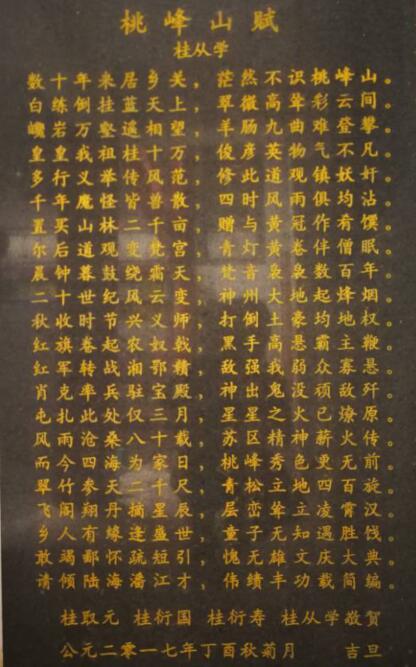 桃峰山赋
桂从学
数十年来居乡关，茫然不识桃峰山。
白练倒挂蓝天上，翠微高耸彩云间
巉岩万壑遥相望，羊肠九曲难登攀
皇皇我祖桂十万，俊彦英物气不凡
多行义举传风范，修此道观镇妖奸
千年魔怪皆兽散，四时风雨俱均沾
置买山林二千亩，赠与黄冠作肴馔
尔后道观变梵宫，青灯黄卷伴僧眠
晨钟暮鼓绕霜天，梵香袅袅数百年
二十世纪风云变，神州大地起烽烟
秋收时节兴义师，打倒土豪均地权
红旗卷农奴戟，黑手高悬霸主鞭
红军转战湘鄂，敌强我弱众寡悬
肖克率兵驻宝殿，神出鬼没顽敌歼
屯扎此处三月，星星之火已燎原
风雨沧桑八十载，苏区精神薪火传
而今四海为家日，桃峰秀色更无前
翠竹参天二千尺，青松立地四百旋
飞阁翔丹摘星辰，层峦耸立凌霄汉
乡人有缘逢盛世，童子无知遇胜饯
敢竭鄙怀疏短引，愧无雄文庆大典
请倾陆海潘江才，伟绩丰功载简编。
桂取元 桂衍国 桂衍寿 桂从学敬贺
公元二零一七年丁酉秋菊月 吉旦